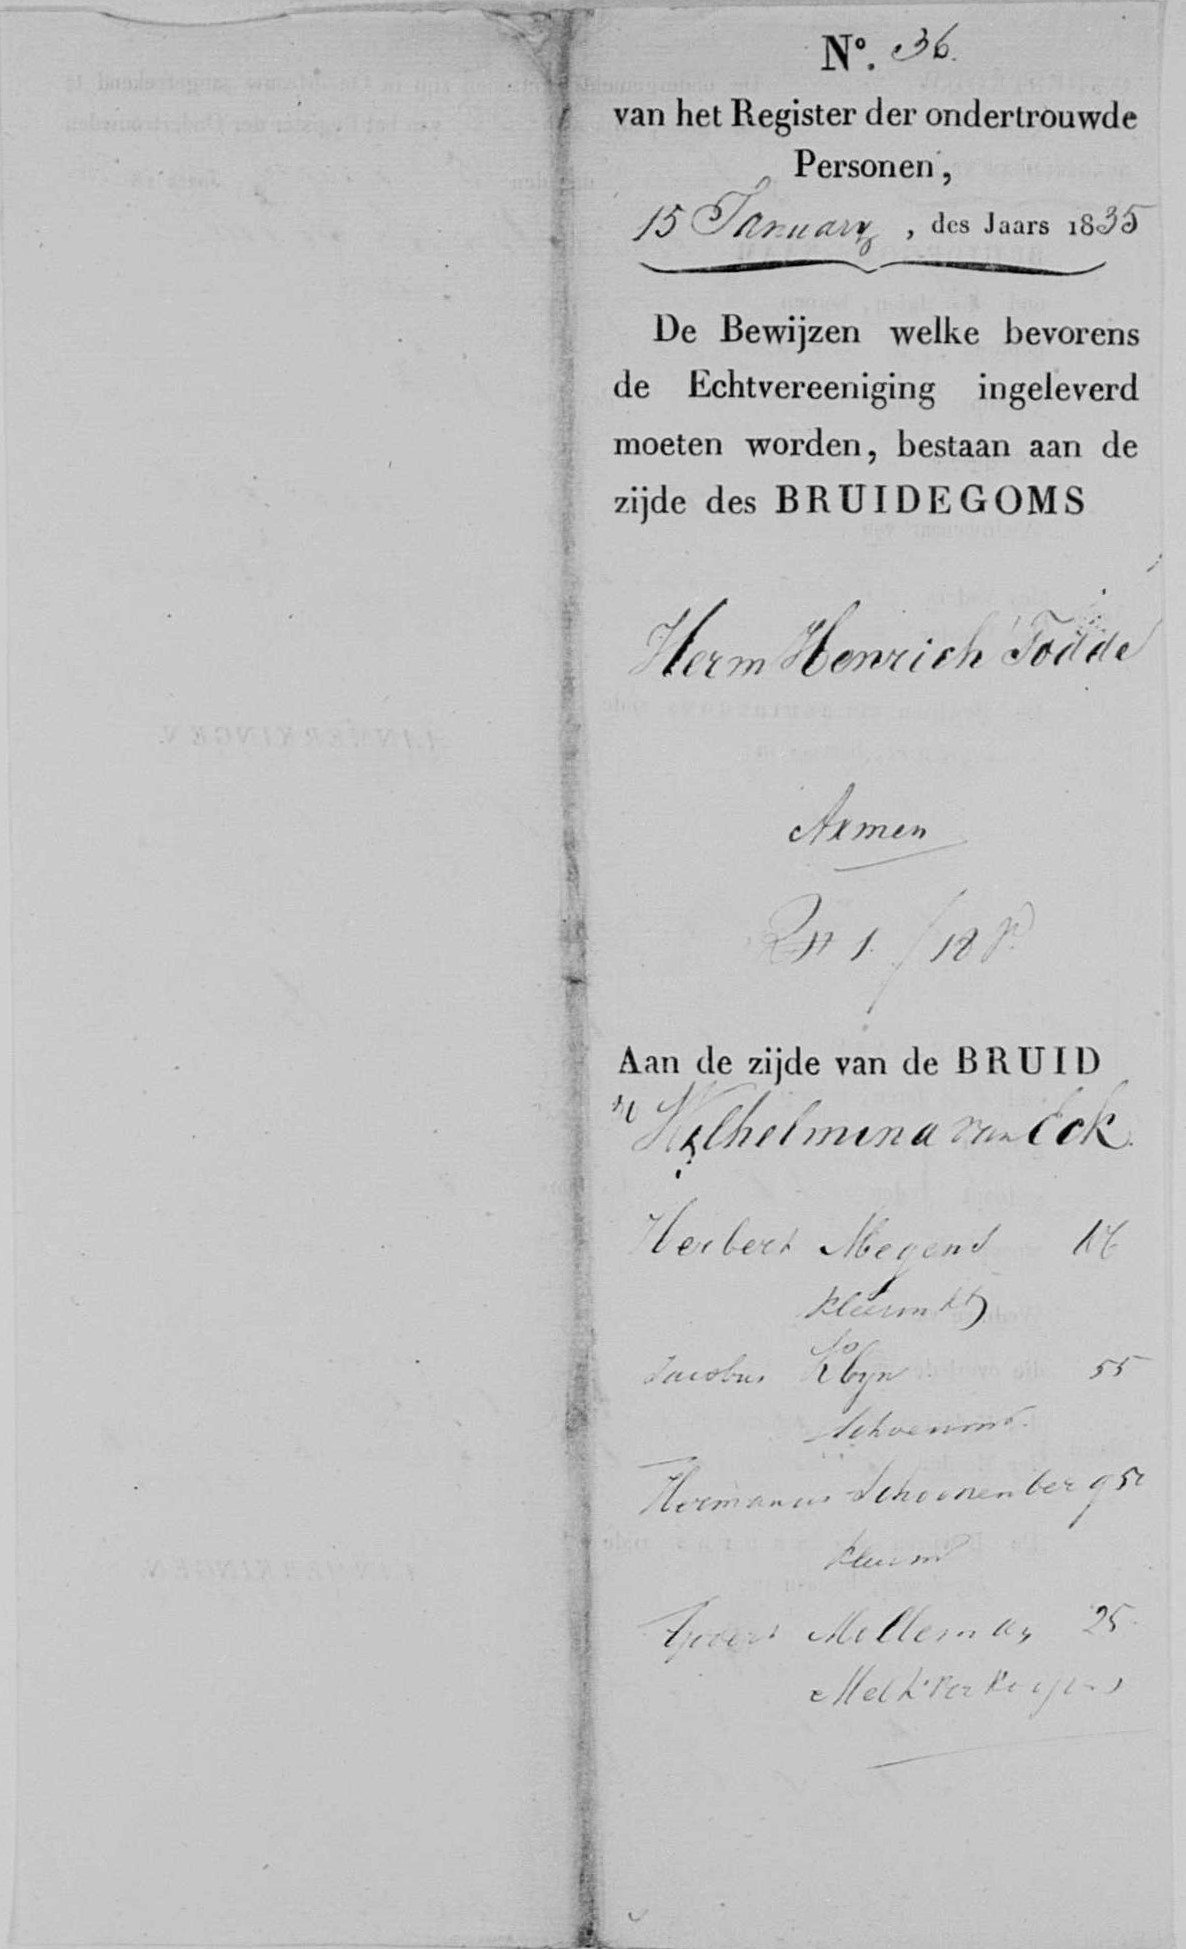 Nº. 36.
van het Register der ondertrouwde
Personen,
15 January, des Jaars 1835
De Bewijzen welke bevorens
de Echtvereeniging ingeleverd
moeten worden, bestaan aan de
zijde des BRUIDEGOMS
Herm Henrich Todde
Armen
1. / 18
Aan de zijde van de BRUID
Wilhelmina van Eck.
Herbert Megens
Jacobus 55
Schoenm
Hermanus Schoonenberg
kleerm
Govert Molleman 25
Melkverkooper